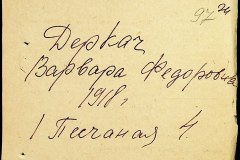 97
Деркач
Варвара Федоровна
1918 г
1 Песчаная 4